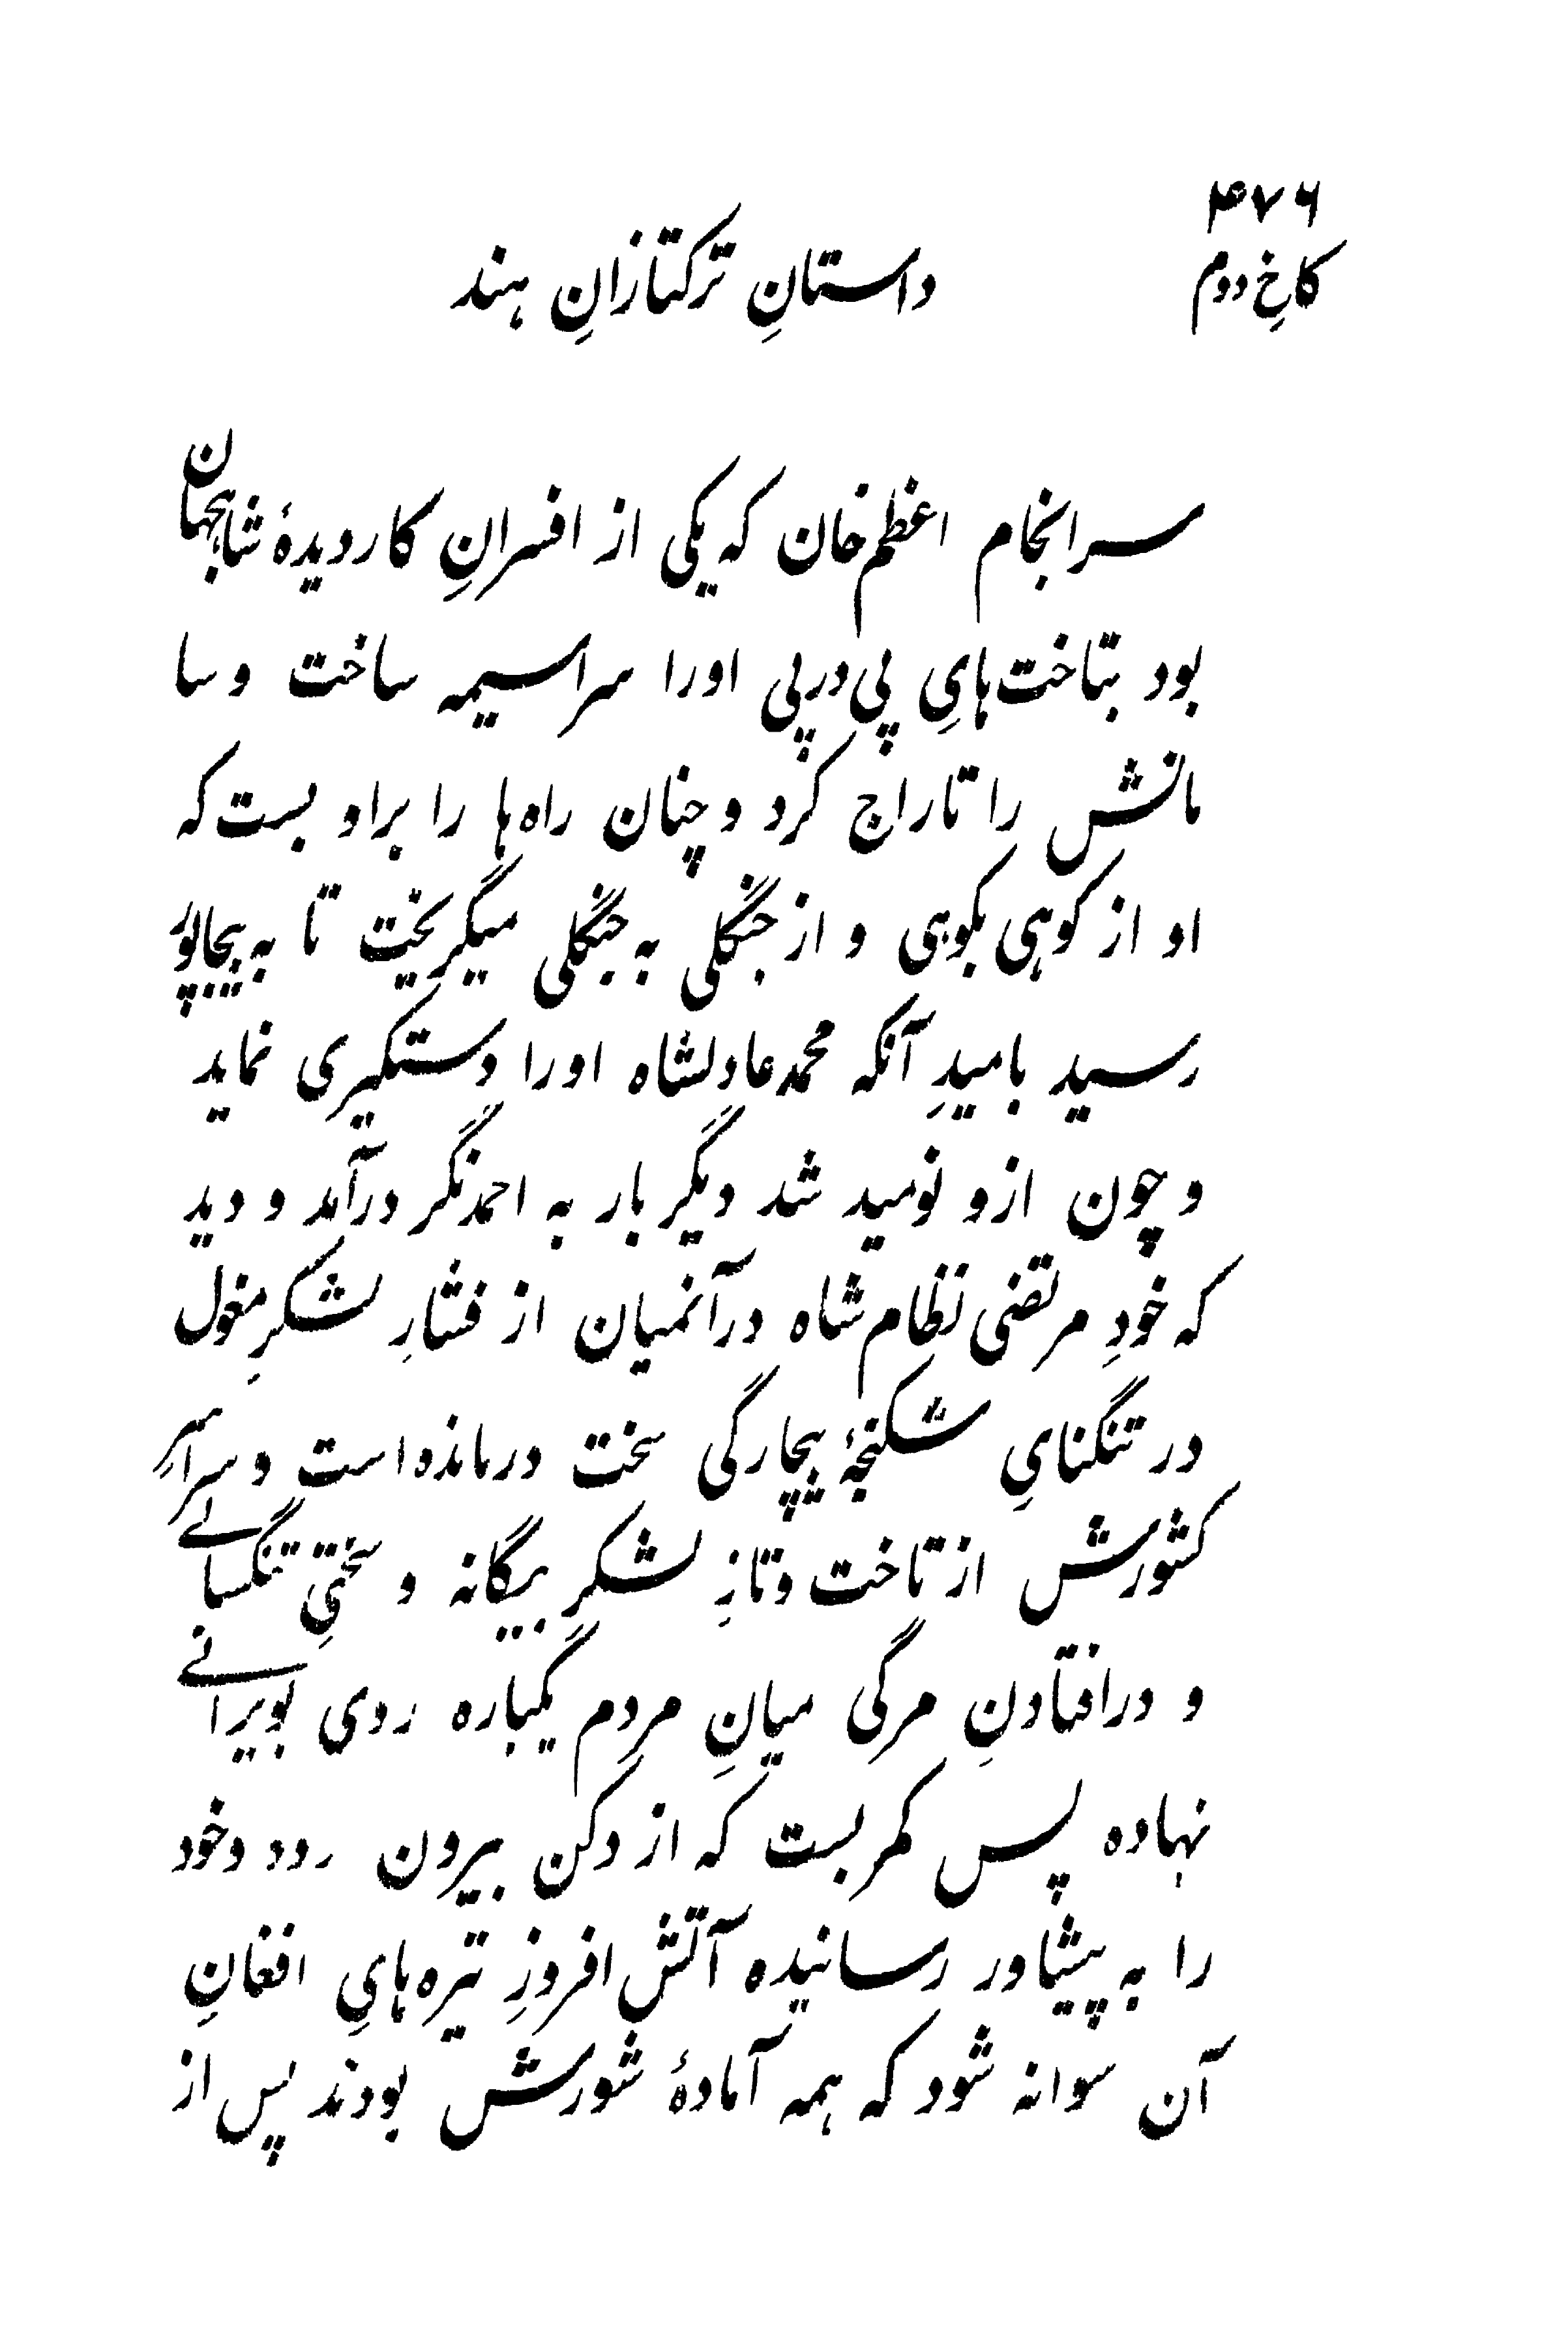 ۴۷۶
کاخِ دوم
داستانِ ترکتازانِ هند
سرانجام اعظم خان که یکی از افسرانِ کاردیدهٔ شاهجهان
بود بتاخت‌هایِ پی در پی اورا سراسیمه ساخت و سا
مانش را تاراج کرد و چنان راه‌ها را براو بست که
او از کوهی بکوهی و از جنگلی به جنگلی میگریخت تا به بیجاپور
رسید بامیدِ آنکه محمد عادلشاه اورا دستگیری نماید
و چون ازو نومید شد دیگر بار به احمدنگر درآمد و دید
که خودِ مرتضی نظام شاه درآنمیان از فشارِ لشکرِ مغول
در تنگنایِ شکنجهٔ بیچارگی سخت درمانده است و سراسرِ
کشورش از تاخت و تازِ لشکرِ بیگانه و سختیِ تنگسالے
و درافتادنِ مرگی میانِ مردم یکباره روی بویرانے
نهاده پس کمر بست که از دکن بیرون رود و خود
را به پیشاور رسانیده آتش افروزِ تیره‌هایِ افغانِ
آن سوانه شود که همه آمادهٔ شورش بودند پس از